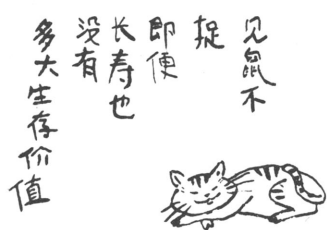 见鼠不
捉
即便
长寿也
没有
多大生存价
值